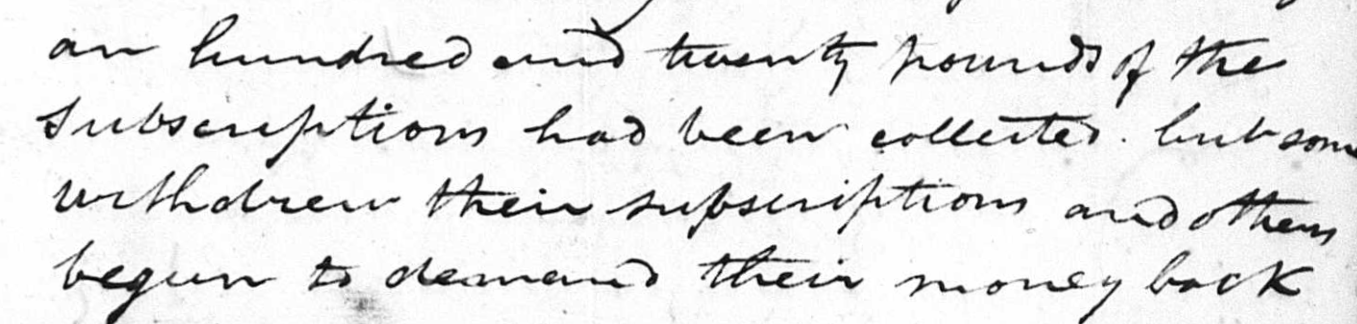 an hundred and twenty pounds of the
Subscriptions had been collected. but some
withdrew their subscriptions and others
begun to demand their money back